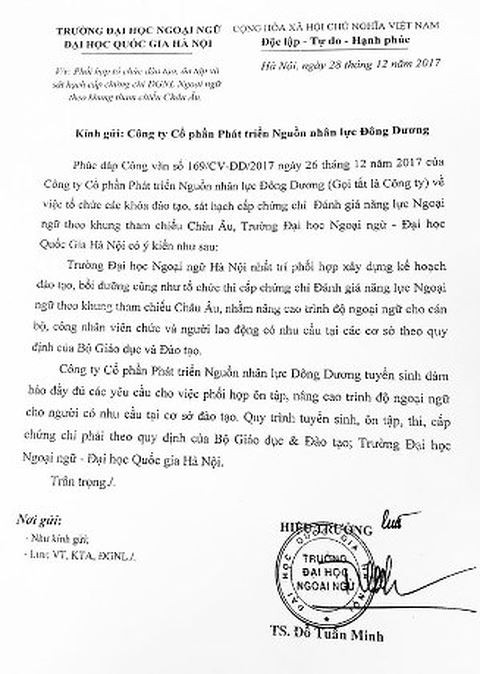 TRƯỜNG ĐẠI HỌC NGOẠI NGỮ
ĐẠI HỌC QUỐC GIA HÀ NỘI
CỘNG HÒA XÃ HỘI CHỦ NGHĨA VIỆT NAM
Độc lập - Tự do - Hạnh phúc
V/v: Phối hợp tổ chức đào tạo, ôn tập và
sát hạch cấp chứng chỉ ĐGNL Ngoại ngữ
theo khung tham chiếu Châu Âu.
Hà Nội, ngày 28 tháng 12 năm 2017
Kính gửi: Công ty Cổ phần Phát triển Nguồn nhân lực Đông Dương
Phúc đáp Công văn số 169/CV-DD/2017 ngày 26 tháng 12 năm 2017 của
Công ty Cổ phần Phát triển Nguồn nhân lực Đông Dương (Gọi tắt là Công ty) về
việc tổ chức các khóa đào tạo, sát hạch cấp chứng chỉ Đánh giá năng lực Ngoại
ngữ theo khung tham chiếu Châu Âu, Trường Đại học Ngoại ngữ - Đại học
Quốc Gia Hà Nội có ý kiến như sau:
Trường Đại học Ngoại ngữ Hà Nội nhất trí phối hợp xây dựng kế hoạch
đào tạo, bồi dưỡng cũng như tổ chức thi cấp chứng chỉ Đánh giá năng lực Ngoại
ngữ theo khung tham chiếu Châu Âu, nhằm nâng cao trình độ ngoại ngữ cho cán
bộ, công nhân viên chức và người lao động có nhu cầu tại các cơ sở theo quy
định của Bộ Giáo dục và Đào tạo.
Công ty Cổ phần Phát triển Nguồn nhân lực Đông Dương tuyển sinh đảm
bảo đầy đủ các yêu cầu cho việc phối hợp ôn tập, nâng cao trình độ ngoại ngữ
cho người có nhu cầu tại cơ sở đào tạo. Quy trình tuyển sinh, ôn tập, thi, cấp
chứng chỉ phải theo quy định của Bộ Giáo dục & Đào tạo; Trường Đại học
Ngoại ngữ - Đại học Quốc gia Hà Nội.
Trân trọng./.
Nơi gửi:
- Như kính gửi;
- Lưu: VT, KTA, ĐGNL./.
HIỆU TRƯỞNG
ĐẠI HỌC QUỐC GIA HÀ NỘI
TRƯỜNG
ĐẠI HỌC
NGOẠI NGỮ
TS. Đỗ Tuấn Minh